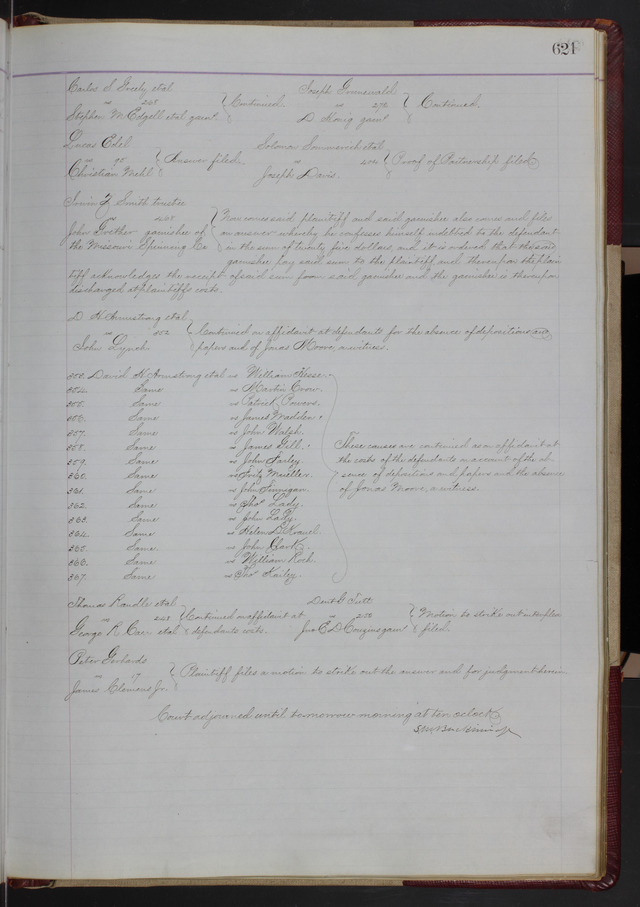 621
Carlos S Greely etal
vs 268
Stephen M Edgell etal garn.
Continued.
Joseph Grunewald
vs 272
D. Konig garn
Continued.
Lucas Edel
vs 95
Christian Mehl
Answer filed.
Solomon Sommerich etal
vs
Joseph Davis.
Proof of Partnership filed
Irwin Z Smith trustee
vs 208
John Grether garnishee of
the Missouri Spinning Co
Now comes said plaintiff and said garnishee also comes and files
an answer whereby he confesses himself indebted to the defendant
in the sum of twenty five dollars, and it is ordered that the said
garnishee pay said sum to the plaintiff and thereupon the plain
tiff acknowledges the receipt of said sum from said garnishee and the garnishee is thereupon
discharged at plaintiffs costs.
D. H Armstrong etal
vs 352
John Lynch
Continued on affidavit at defendants for the absence of depositions and
papers and of Jonas Moore, a witness.
353. David H. Armstrong etal vs William Hesse.
354. Same vs Martin Crow.
355. Same vs Patrick Powers.
356. Same vs James Madden.
357. Same vs John Walsh.
358. Same vs James Gill.
359. Same vs John Farley
360. Same vs Fritz Mueller.
361. Same vs John Finnegan.
362. Same vs Thos Lady.
363. Same vs John Lally.
364. Same vs Helen
365. Same vs John Clark.
366. Same vs William Koch.
367. Same vs Thos Kailey.
These causes are continued as on affidavit at
the costs of the defendants on account of the ab
sence of depositions and papers and the absence
of Jonas Moore, a witness.
Thomas Randle etal
vs 243
George R. Cave etal
Continued on affidavit at
defendants costs.
Dent G Tutt
vs 250
Jno E D Couzins garn
Motion to strike out interplea
filed.
Peter Gerhards
vs 17
James Clemens Jr.
Plaintiff files a motion to strike out the answer and for judgment herein
Court adjourned until tomorrow morning at ten oclock